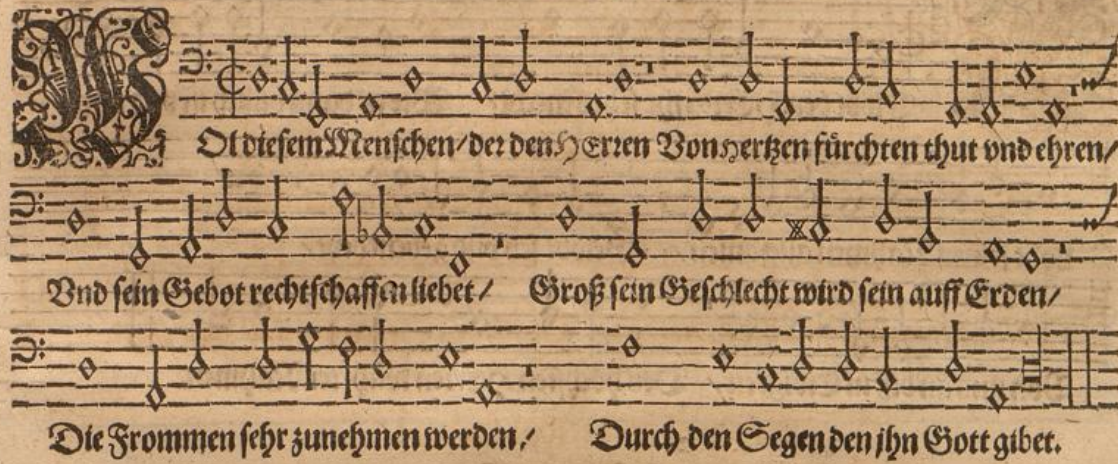 WOl diesem Menschen/ der den HErren Von hertzen fürchten thut vnd ehren/
Vnd sein Gebot rechtschaffen liebet/ Groß sein Geschlecht wird sein auff Erden/
Die Frommen sehr zunehmen werden/ Durch den Segen den jhn Gott gibet.